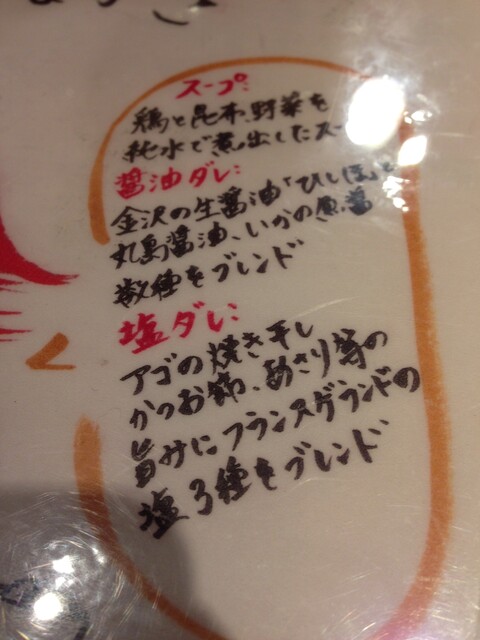 スープ:
鶏と昆布、野菜を
純水で煮出したスー
醤油ダレ:
金沢の生醤油「ひしほ」と
丸島醤油、いかの魚醤
数種をブレンド
塩ダレ:
アゴの焼き干し
かつお節、あさり等の
旨みにフランスゲランドの
塩3種をブレンド